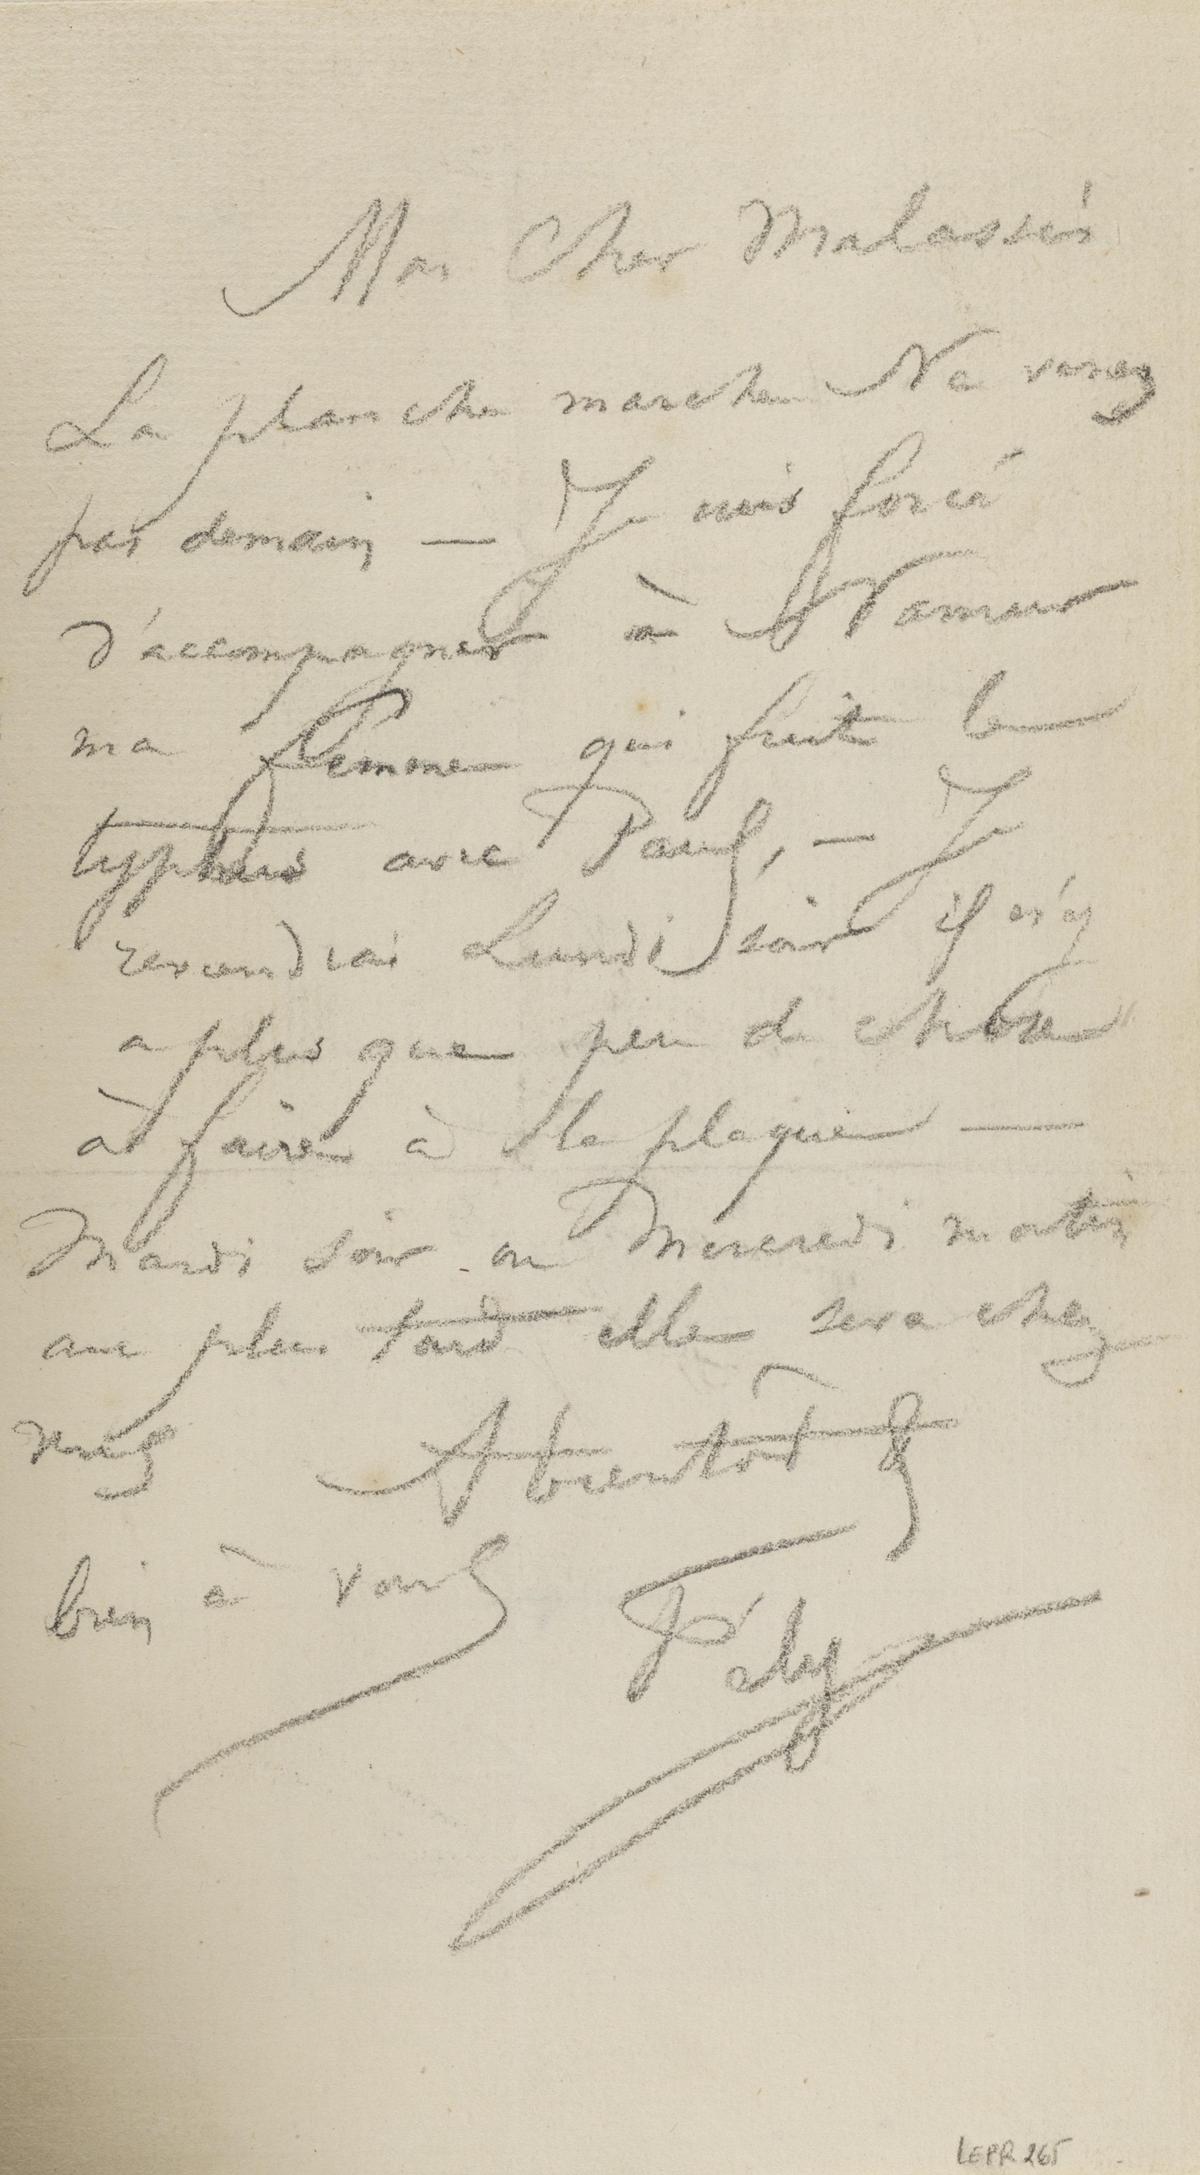 Mon Cher Malassis
La planche marche Ne venez
pas demain — Je suis forcé
d'accompagner à Namur
ma femme qui fuit le
typhus avec Paul, — Je
reviendrai Lundi soir il n'y
a plus que peu de chose
à faire à la plaque —
Mardi soir ou Mercredi matin
au plus tard elle sera chez
A bientôt &
bien à vous
Fély
LEPR 265